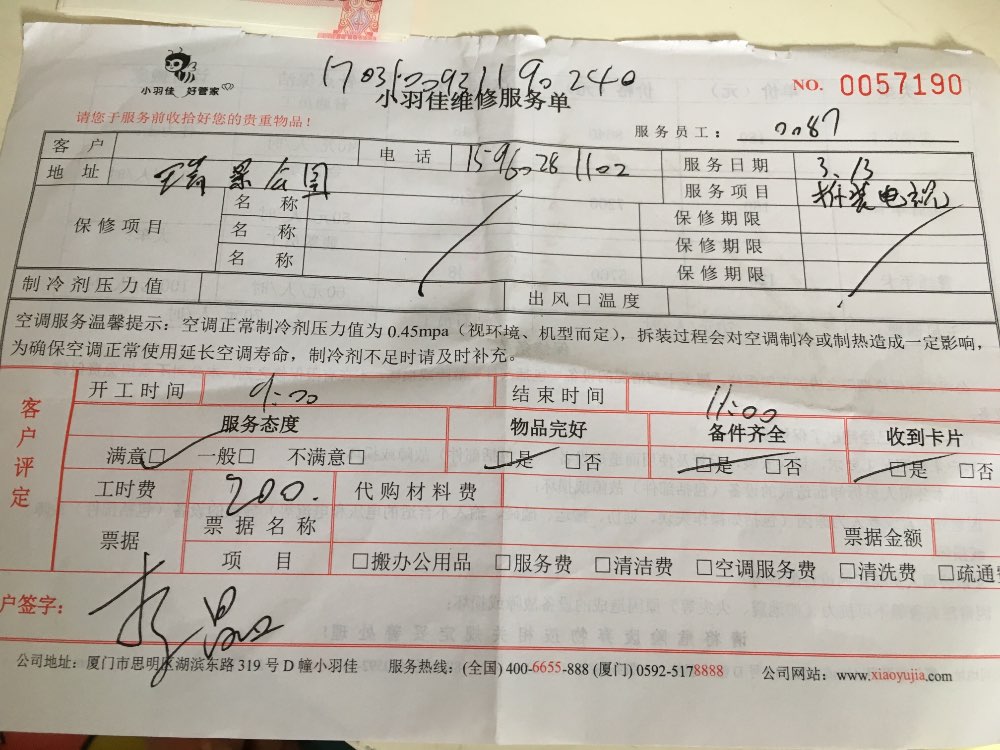 17031500921190240
NO. 0057190
小羽佳 好管家
小羽佳维修服务单
请您于服务前收拾好您的贵重物品！
服务员工： 0087
客 户 电 话 15960281102 服务日期 3.13
地 址 瑞景公园 服务项目 拆装电视
保修项目 名 称 保修期限
名 称 保修期限
名 称 保修期限
制冷剂压力值 出风口温度
空调服务温馨提示：空调正常制冷剂压力值为 0.45mpa（视环境、机型而定），拆装过程会对空调制冷或制热造成一定影响，
为确保空调正常使用延长空调寿命，制冷剂不足时请及时补充。
客户评定
开工时间 9:00 结束时间 11:00
服务态度 物品完好 备件齐全 收到卡片
满意□ 一般□ 不满意□ □是 □否 □是 □否 □是 □否
工时费 200. 代购材料费
票据 票据名称 票据金额
项 目 □搬办公用品 □服务费 □清洁费 □空调服务费 □清洗费 □疏通费
户签字：
公司地址：厦门市思明区湖滨东路 319 号 D 幢小羽佳 服务热线：(全国) 400-6655-888 (厦门) 0592-5178888 公司网站：www.xiaoyujia.com